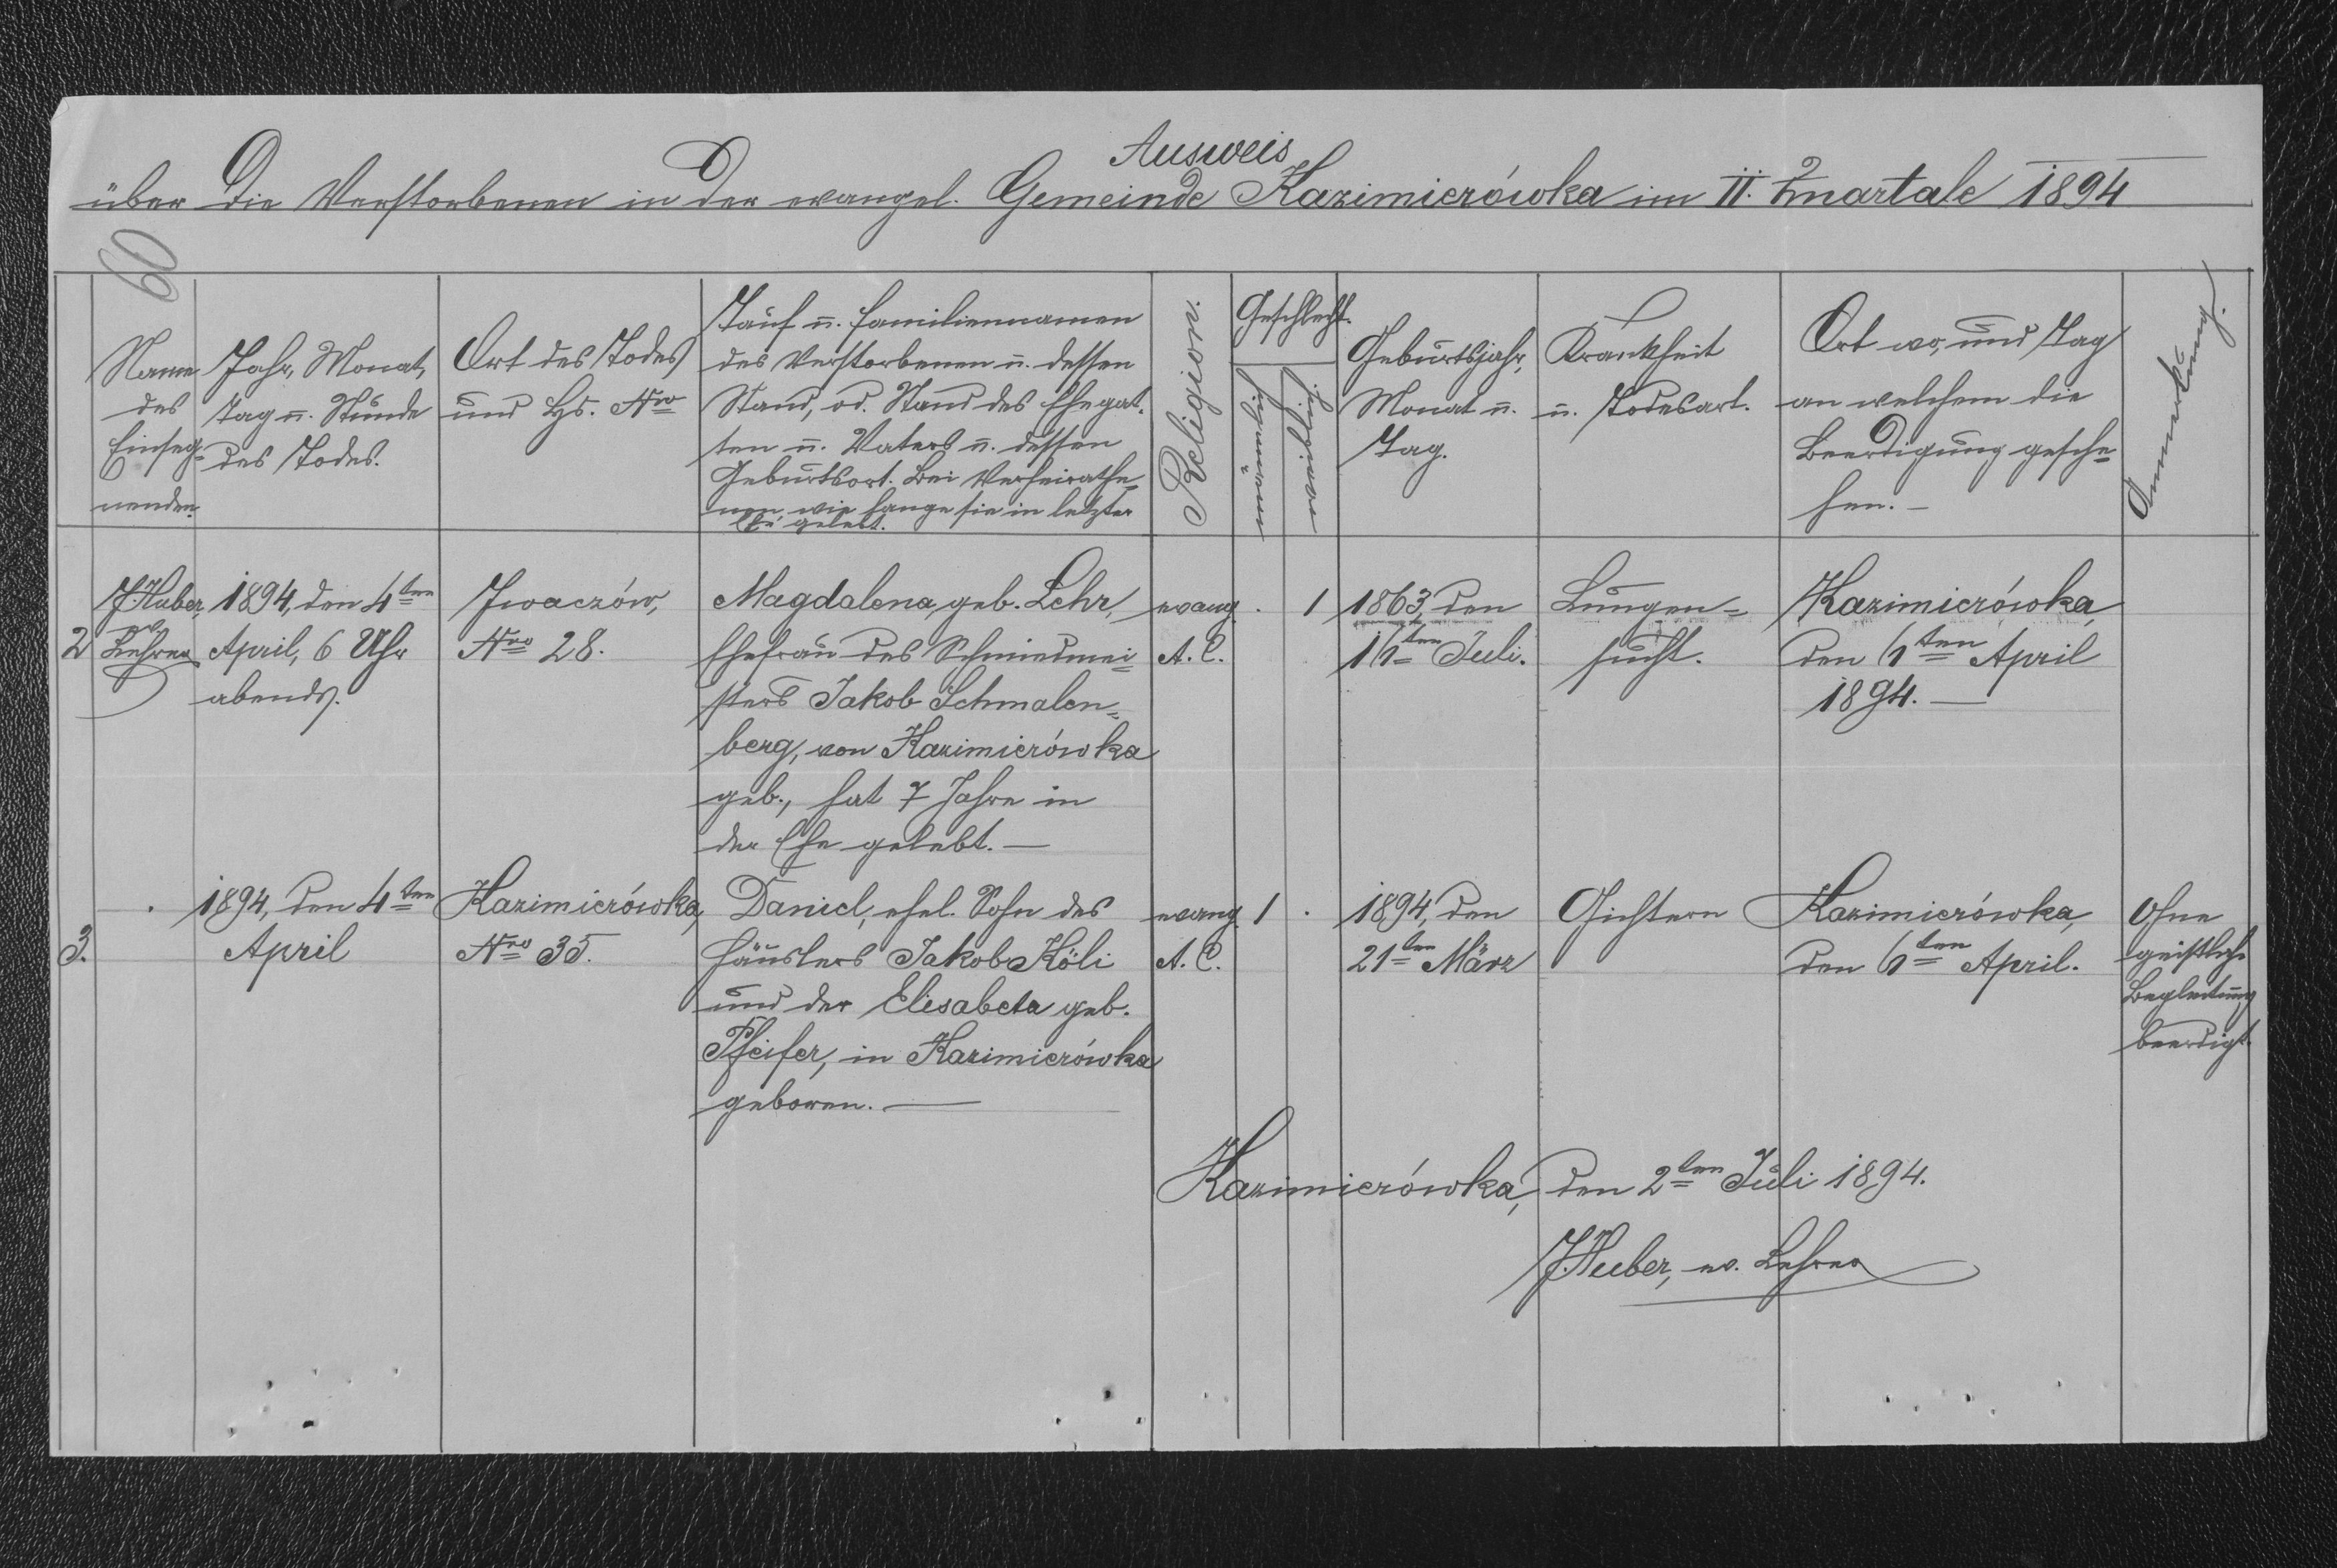 Ausweis
über die Verstorbenen in der evangel. Gemeinde Kazimierówka im II. Quartale 1894
60
Name
des
Einseg-
nenden.
Jahr, Monat,
Tag u. Stunde
des Todes.
Ort des Todes
und Hs. Nro
Tauf u. Familiennamen
des Verstorbenen u. dessen
Stand, od. Stand des Ehegat-
ten u. Vaters u. dessen
Geburtsort. Bei Verheirathe-
nen, wie lange sie in letzter
Ehe gelebt.
Religion.
Geschlecht.
männlich
weiblich
Geburtsjahr,
Monat u.
Tag.
Krankheit
u. Todesart.
Ort wo, und Tag
an welchem die
Beerdigung gesche-
hen. –
Anmerkung.
2
J. Huber,
ev.
Lehrer
1894, den 4ten
April, 6 Uhr
abends.
Iwaczów,
Nro 28.
Magdalena, geb. Lehr,
Ehefrau des Schmiedmei-
sters Jakob Schmalen-
berg, von Kazimierówka
geb., hat 7 Jahre in
der Ehe gelebt. —
evang.
A. C.
. 1
1863, den
16ten Juli.
Lungen-
sucht.
Kazimierówka,
den 6ten April
1894. —
3.
— .
1894, den 4ten
April
Kazimierówka,
Nro 35.
Daniel, ehel. Sohn des
Häuslers Jakob Köli
und der Elisabeta geb.
Pfeifer, in Kazimierówka
geboren. —
evang.
A. C.
1 .
1894, den
21ten März
Gichtern
Kazimierówka,
den 6ten April.
Ohne
geistliche
Begleitung
beerdigt.
Kazimierówka, den 2ten Juli 1894.
J. Huber, ev. Lehrer